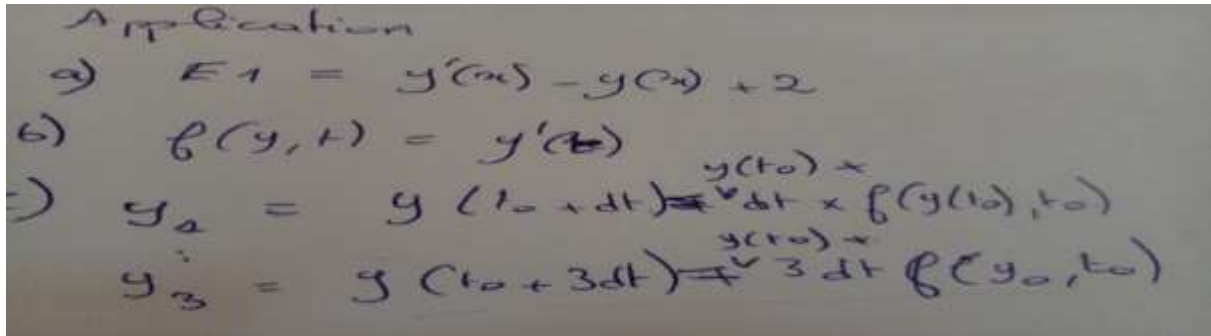 Application
a) E1 = y'(x) - y(x) + 2
b) f(y, t) = y'(t)
c) y1 = y (t0 + dt) = y(t0) + dt x f(y(t0), t0)
:
y3 = y (t0 + 3dt) = y(t0) + 3 dt f(y0, t0)